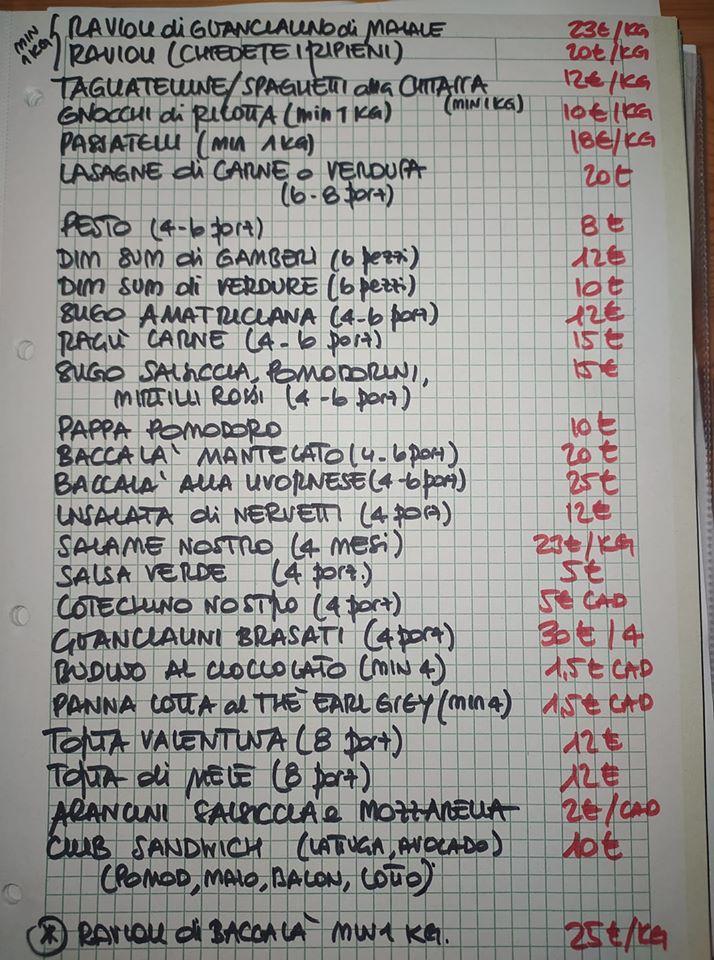 MIN 1KG { RAVIOLI di GUANCIALINO di MAIALE 23€/KG
RAVIOLI (CHIEDETE I RIPIENI) 20€/KG
TAGLIATELLINE/SPAGHETTI alla CHITARRA (MIN 1KG) 12€/KG
GNOCCHI di RICOTTA (min 1 KG) 10€/KG
PASSATELLI (min 1KG) 18€/KG
LASAGNE di CARNE o VERDURA 20€
(6-8 port)
PESTO (4-6 port) 8€
DIM SUM di GAMBERI (6 pezzi) 12€
DIM SUM di VERDURE (6 pezzi) 10€
SUGO AMATRICIANA (4-6 port) 12€
RAGU' CARNE (4-6 port) 15€
SUGO SALSICCIA, POMODORINI, 15€
MIRTILLI ROSSI (4-6 port)
PAPPA POMODORO 10€
BACCALA' MANTECATO (4-6 port) 20€
BACCALA' ALLA LIVORNESE (4-6 port) 25€
INSALATA di NERVETTI (4 port) 12€
SALAME NOSTRO (4 MESI) 23€/KG
SALSA VERDE (4 port.) 5€
COTECHINO NOSTRO (4 port) 5€ CAD
GUANCIALINI BRASATI (4 port) 30€/4
BUDINO AL CIOCCOLATO (MIN 4) 1,5€ CAD
PANNA COTTA al THÈ EARL GREY (min 4) 1,5€ CAD
TORTA VALENTINA (8 port) 12€
TORTA di MELE (8 port) 12€
ARANCINI SALSICCIA e MOZZARELLA 2€/CAD
CLUB SANDWICH (LATTUGA, AVOCADO) 10€
(POMOD, MAIO, BACON, COTTO)
* RAVIOLI di BACCALA' MIN 1 KG. 25€/KG